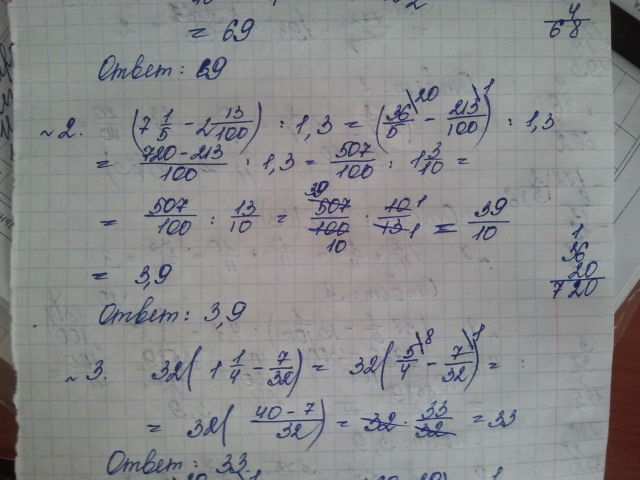 = 69
4
68
Ответ: 69
№2. (7 1/5 - 2 13/100) : 1,3 = (36/5 \20 - 213/100 \1) : 1,3
= 720-213/100 : 1,3 = 507/100 : 1 3/10 =
= 507/100 : 13/10 = 39 507/100 10 · 10 1/13 1 = 39/10
1
36
20
720
= 3,9
Ответ: 3,9
№3. 32(1 1/4 - 7/32) = 32(5/4 \8 - 7/32 \1) =
= 32(40-7/32) = 32 · 33/32 = 33
Ответ: 33